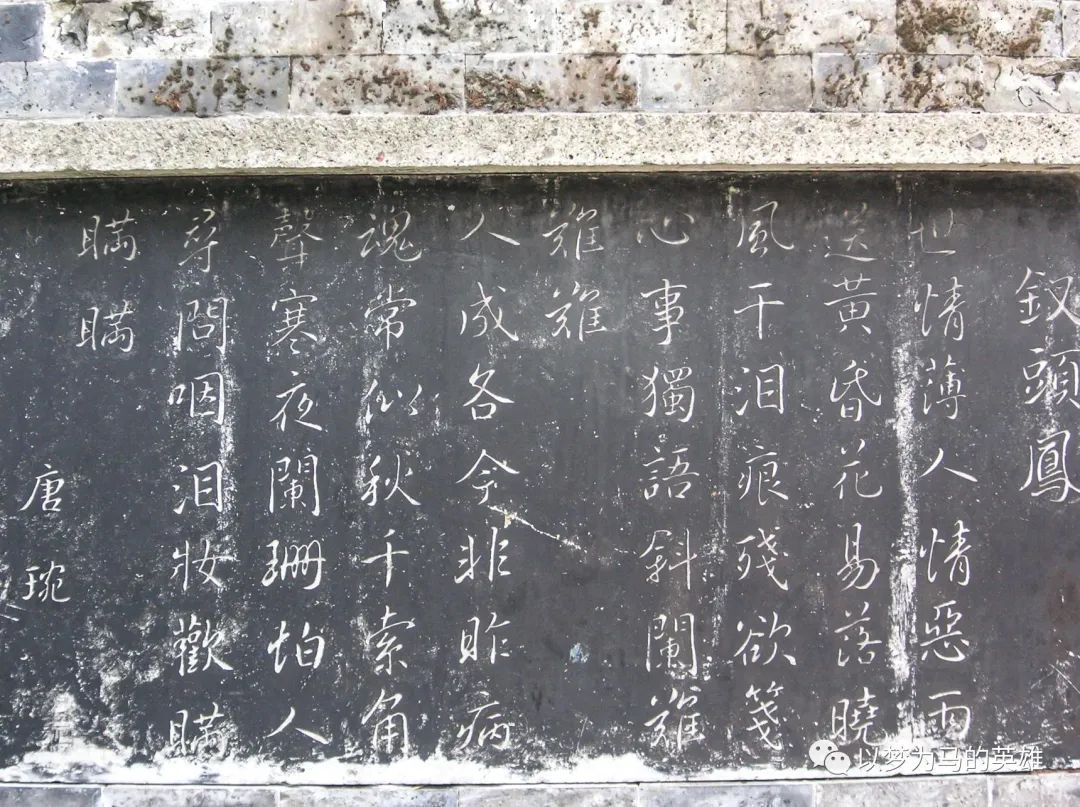 釵頭鳳
世情薄人情惡雨
送黃昏花易落曉
風干泪痕殘欲箋
心事獨語斜闌難
難難
人成各今非昨病
魂常似秋千索角
聲寒夜闌珊怕人
尋問咽泪妝歡瞞
瞞瞞
唐琬
以梦为马的英雄